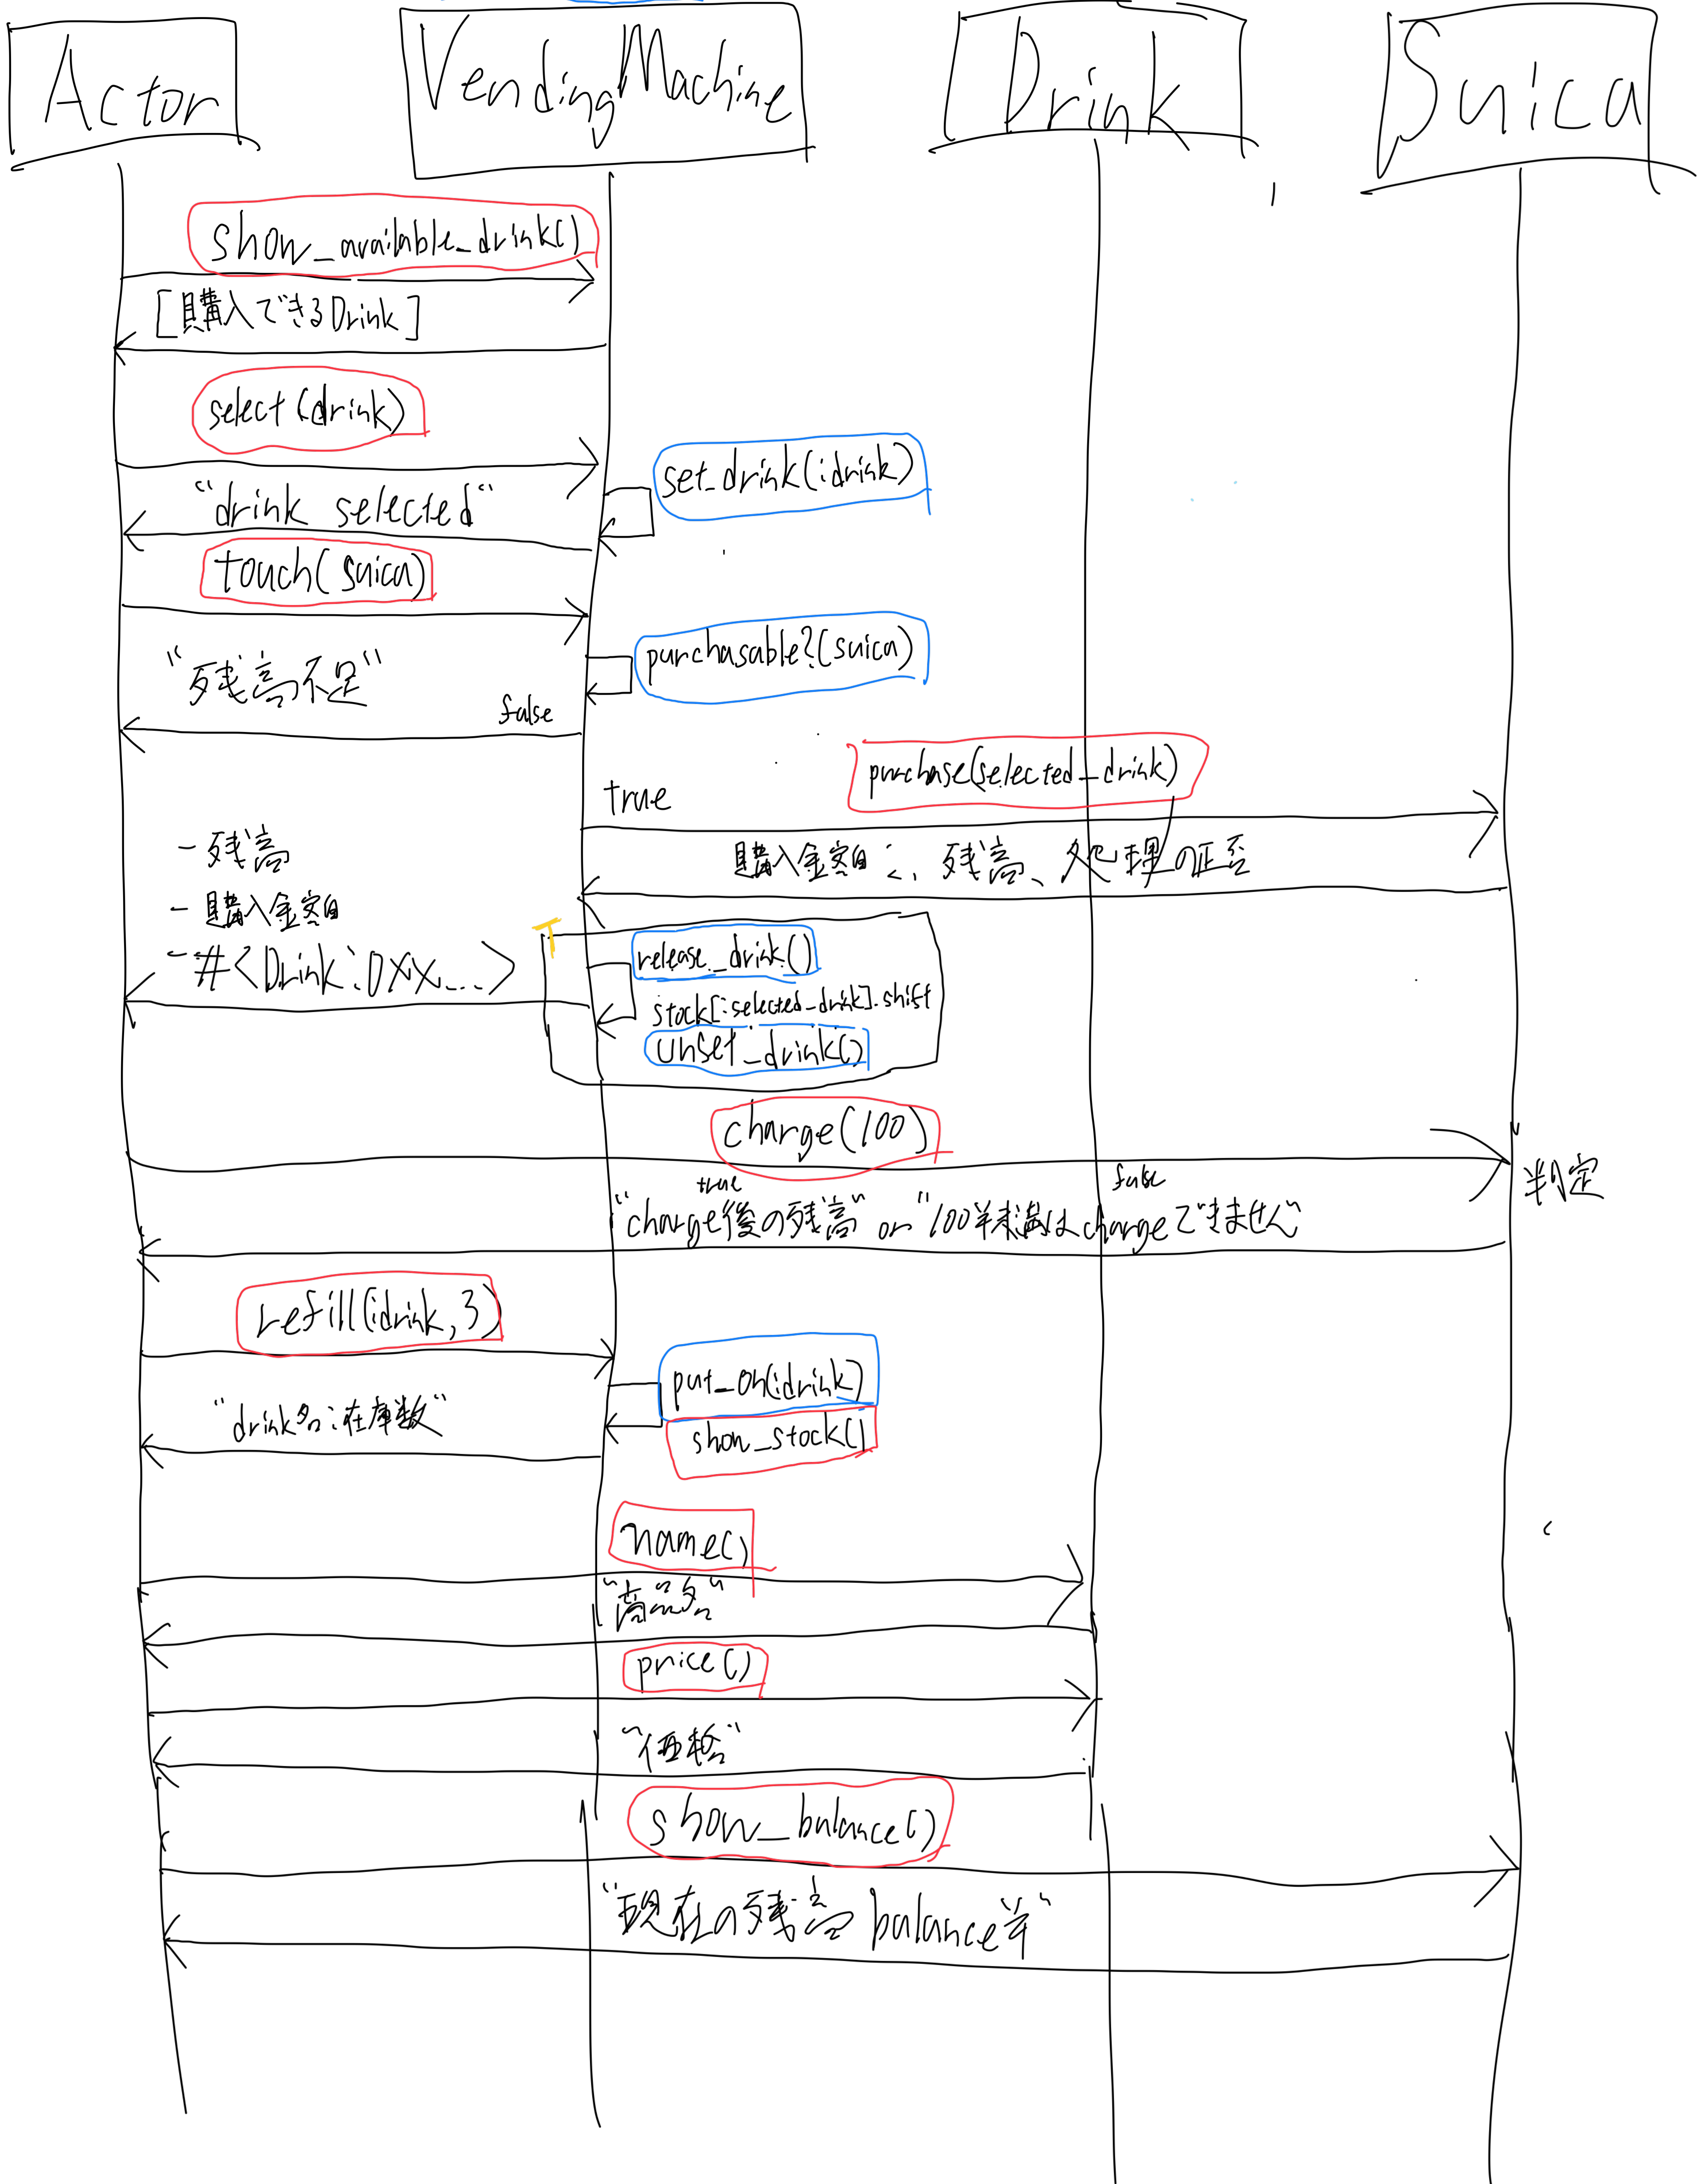 Actor
Vending Machine
Drink
Suica
show_available_drink()
[購入できるDrink]
select(drink)
set_drink(:drink)
"drink selected"
touch(suica)
purchasable?(suica)
"残高不足"
false
purchase(selected_drink)
true
購入金額、残高、処理の正否
- 残高
- 購入金額
- #<Drink:0xx...>
release_drink()
stock[:selected_drink].shift
unset_drink()
charge(100)
true
false
判定
"charge後の残高" or "100¥未満はchargeできません"
refill(:drink,3)
put_on(:drink)
show_stock()
"drink名:在庫数"
name()
"商品名"
price()
"価格"
show_balance()
"現在の残高 balance¥"